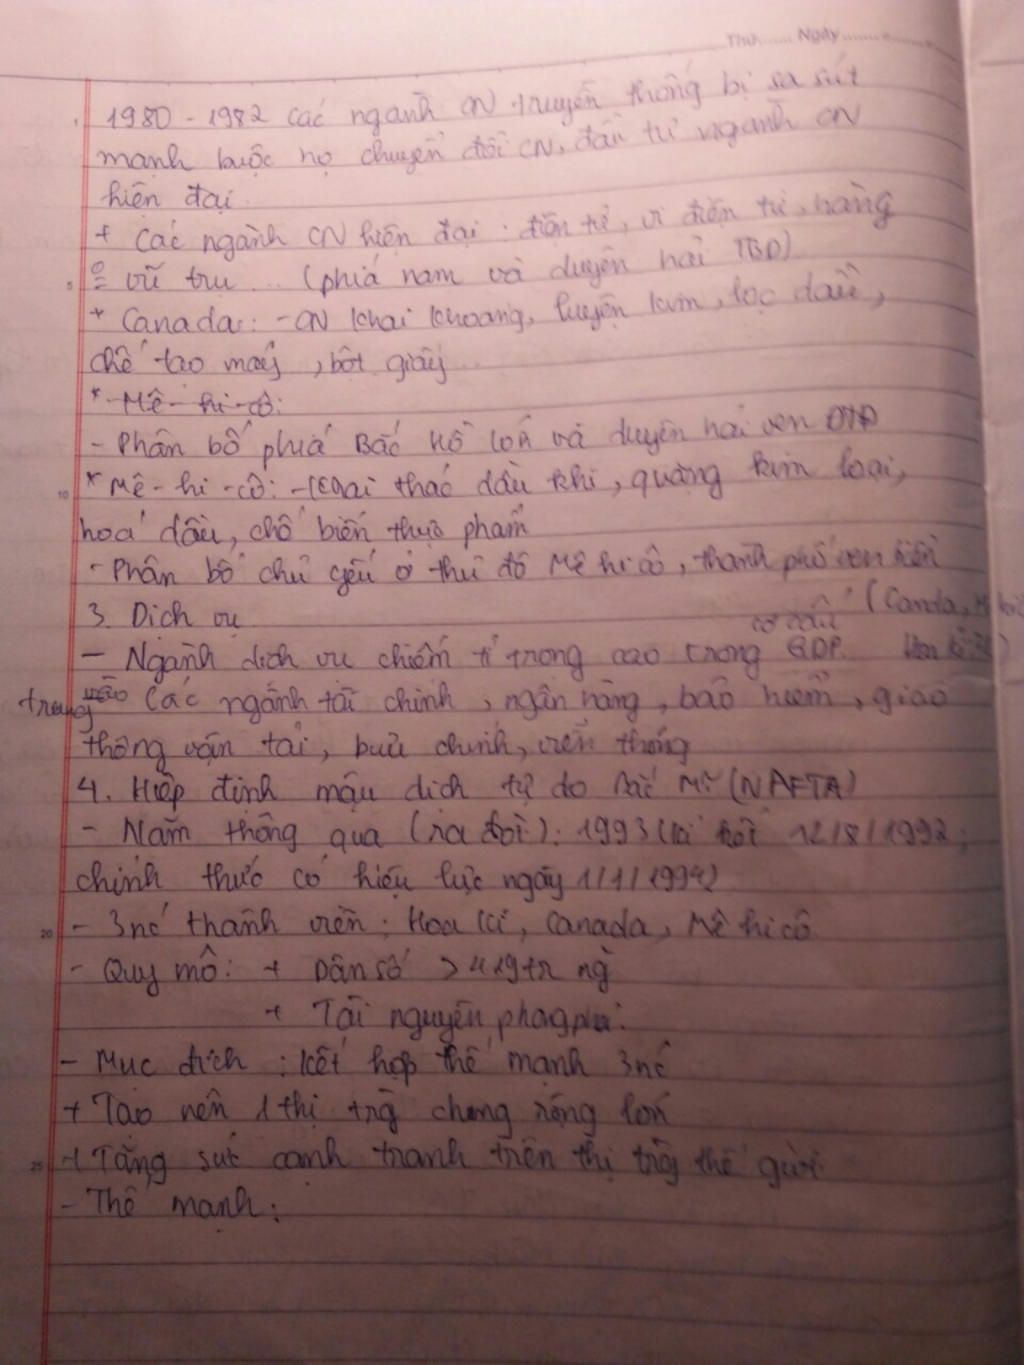 Thứ....... Ngày..............
1980 - 1982 các ngành CN truyền thống bị sa sút
mạnh buộc họ chuyển đổi CN, đầu tư ngành CN
hiện đại.
+ Các ngành CN hiện đại : điện tử, vi điện tử, hàng
= vũ trụ ... (phía nam và duyên hải TBD)
+ Canada: - CN khai khoáng, luyện kim, lọc dầu,
chế tạo máy, bột giấy...
* Mê - hi - cô:
- Phân bố phía Bắc Hồ lớn và duyên hải ven ĐTD
10 * Mê - hi - cô: - Khai thác dầu khí, quặng kim loại,
hoá dầu, chế biến thực phẩm
- Phân bố chủ yếu ở thủ đô Mê hi cô, thành phố ven biển
3. Dịch vụ
cơ cấu (Canda,
- Ngành dịch vụ chiếm tỉ trọng cao trong GDP.
trong vào Các ngành tài chính, ngân hàng, bảo hiểm, giao
thông vận tải, bưu chính, viễn thông
4. Hiệp định mậu dịch tự do Bắc Mĩ (NAFTA)
- Năm thông qua (ra đời): 1993 (kí kết 12/8/1992;
chính thức có hiệu lực ngày 1/1/1994)
20 - 3 nc thành viên : Hoa Kì, Canada, Mê hi cô
- Quy mô: + Dân số > 419 tr ng
+ Tài nguyên phong phú.
- Mục đích : kết hợp thế mạnh 3 nc
+ Tạo nên 1 thị trg chung rộng lớn
25 + Tăng sức cạnh tranh trên thị trg thế giới
- Thế mạnh: